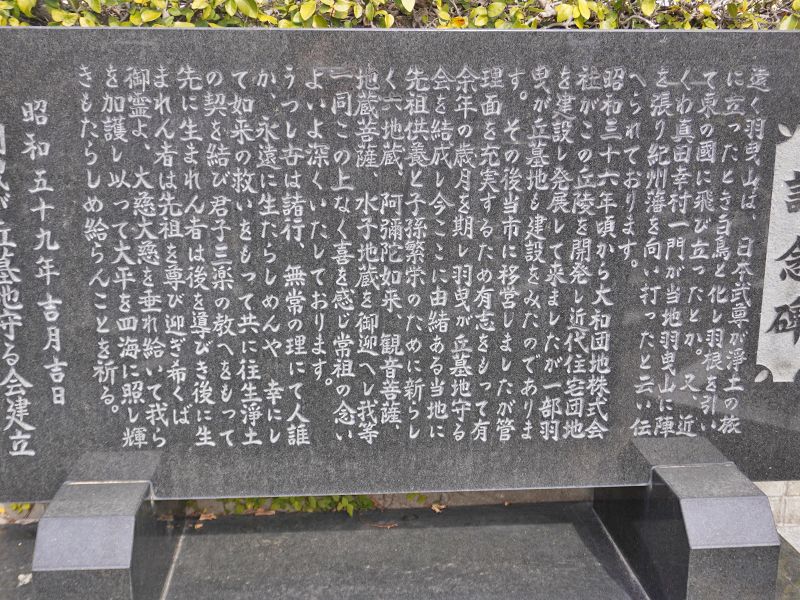 記念碑
遠く羽曳山は、日本武尊が浄土の旅
に立ったとき白鳥と化し羽根を引い
て東の國に飛び立ったとか。又、近
くわ真田幸村一門が当地羽曳山に陣
を張り紀州藩を向い打ったと云い伝
へられております。
昭和三十六年頃から大和団地株式会
社がこの丘陵を開発し近代住宅団地
を建設し発展して来ましたが一部羽
曳が丘墓地も建設をみたのでありま
す。その後当市に移営しましたが管
理面を充実するため有志をもって有
余年の歳月を期し羽曳が丘墓地守る
会を結成し今ここに由緒ある当地に
先祖供養と子孫繁栄のために新らし
く六地蔵、阿彌陀如来、観音菩薩、
地蔵菩薩、水子地蔵を御迎へし我等
一同この上なく喜を感じ常祖の念い
よいよ深くいたしております。
うつし世は諸行、無常の理にて人誰
か、永遠に生たらしめんや 幸にし
て如来の救いをもって共に往生浄土
の契を結び君子三楽の教へをもって
先に生まれん者は後を導びき後に生
まれん者は先祖を尊び迎ぎ布くば
御霊よ、大慈大慈を垂れ給いて我ら
を加護し以って大平を四海に照し輝
きもたらしめ給らんことを祈る。
昭和五十九年吉月吉日
羽曳が丘墓地守る会建立